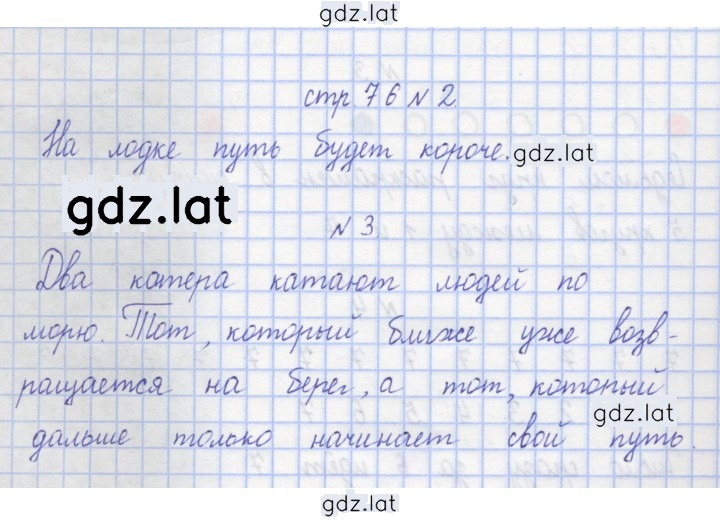 gdz.lat
стр 76 № 2
На лодке путь будет короче.
gdz.lat
gdz.lat
№ 3
Два катера катают людей по
морю. Тот, который ближе уже возв-
ращается на берег, а тот, который
gdz.lat
дальше только начинает свой путь.
gdz.lat